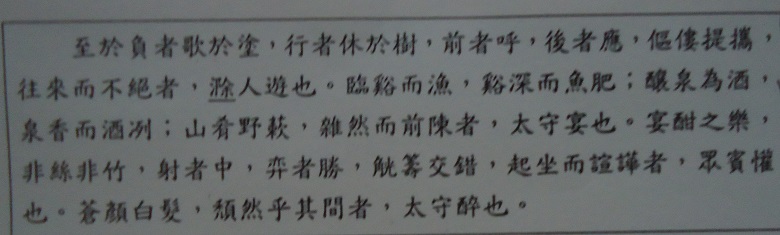 至於負者歌於塗,行者休於樹,前者呼,後者應,傴僂提攜,
往來而不絕者,滁人遊也。臨谿而漁,谿深而魚肥;釀泉為酒,
泉香而酒冽;山肴野蔌,雜然而前陳者,太守宴也。宴酣之樂,
非絲非竹,射者中,弈者勝,觥籌交錯,起坐而諠譁者,眾賓懽
也。蒼顏白髮,頹然乎其間者,太守醉也。